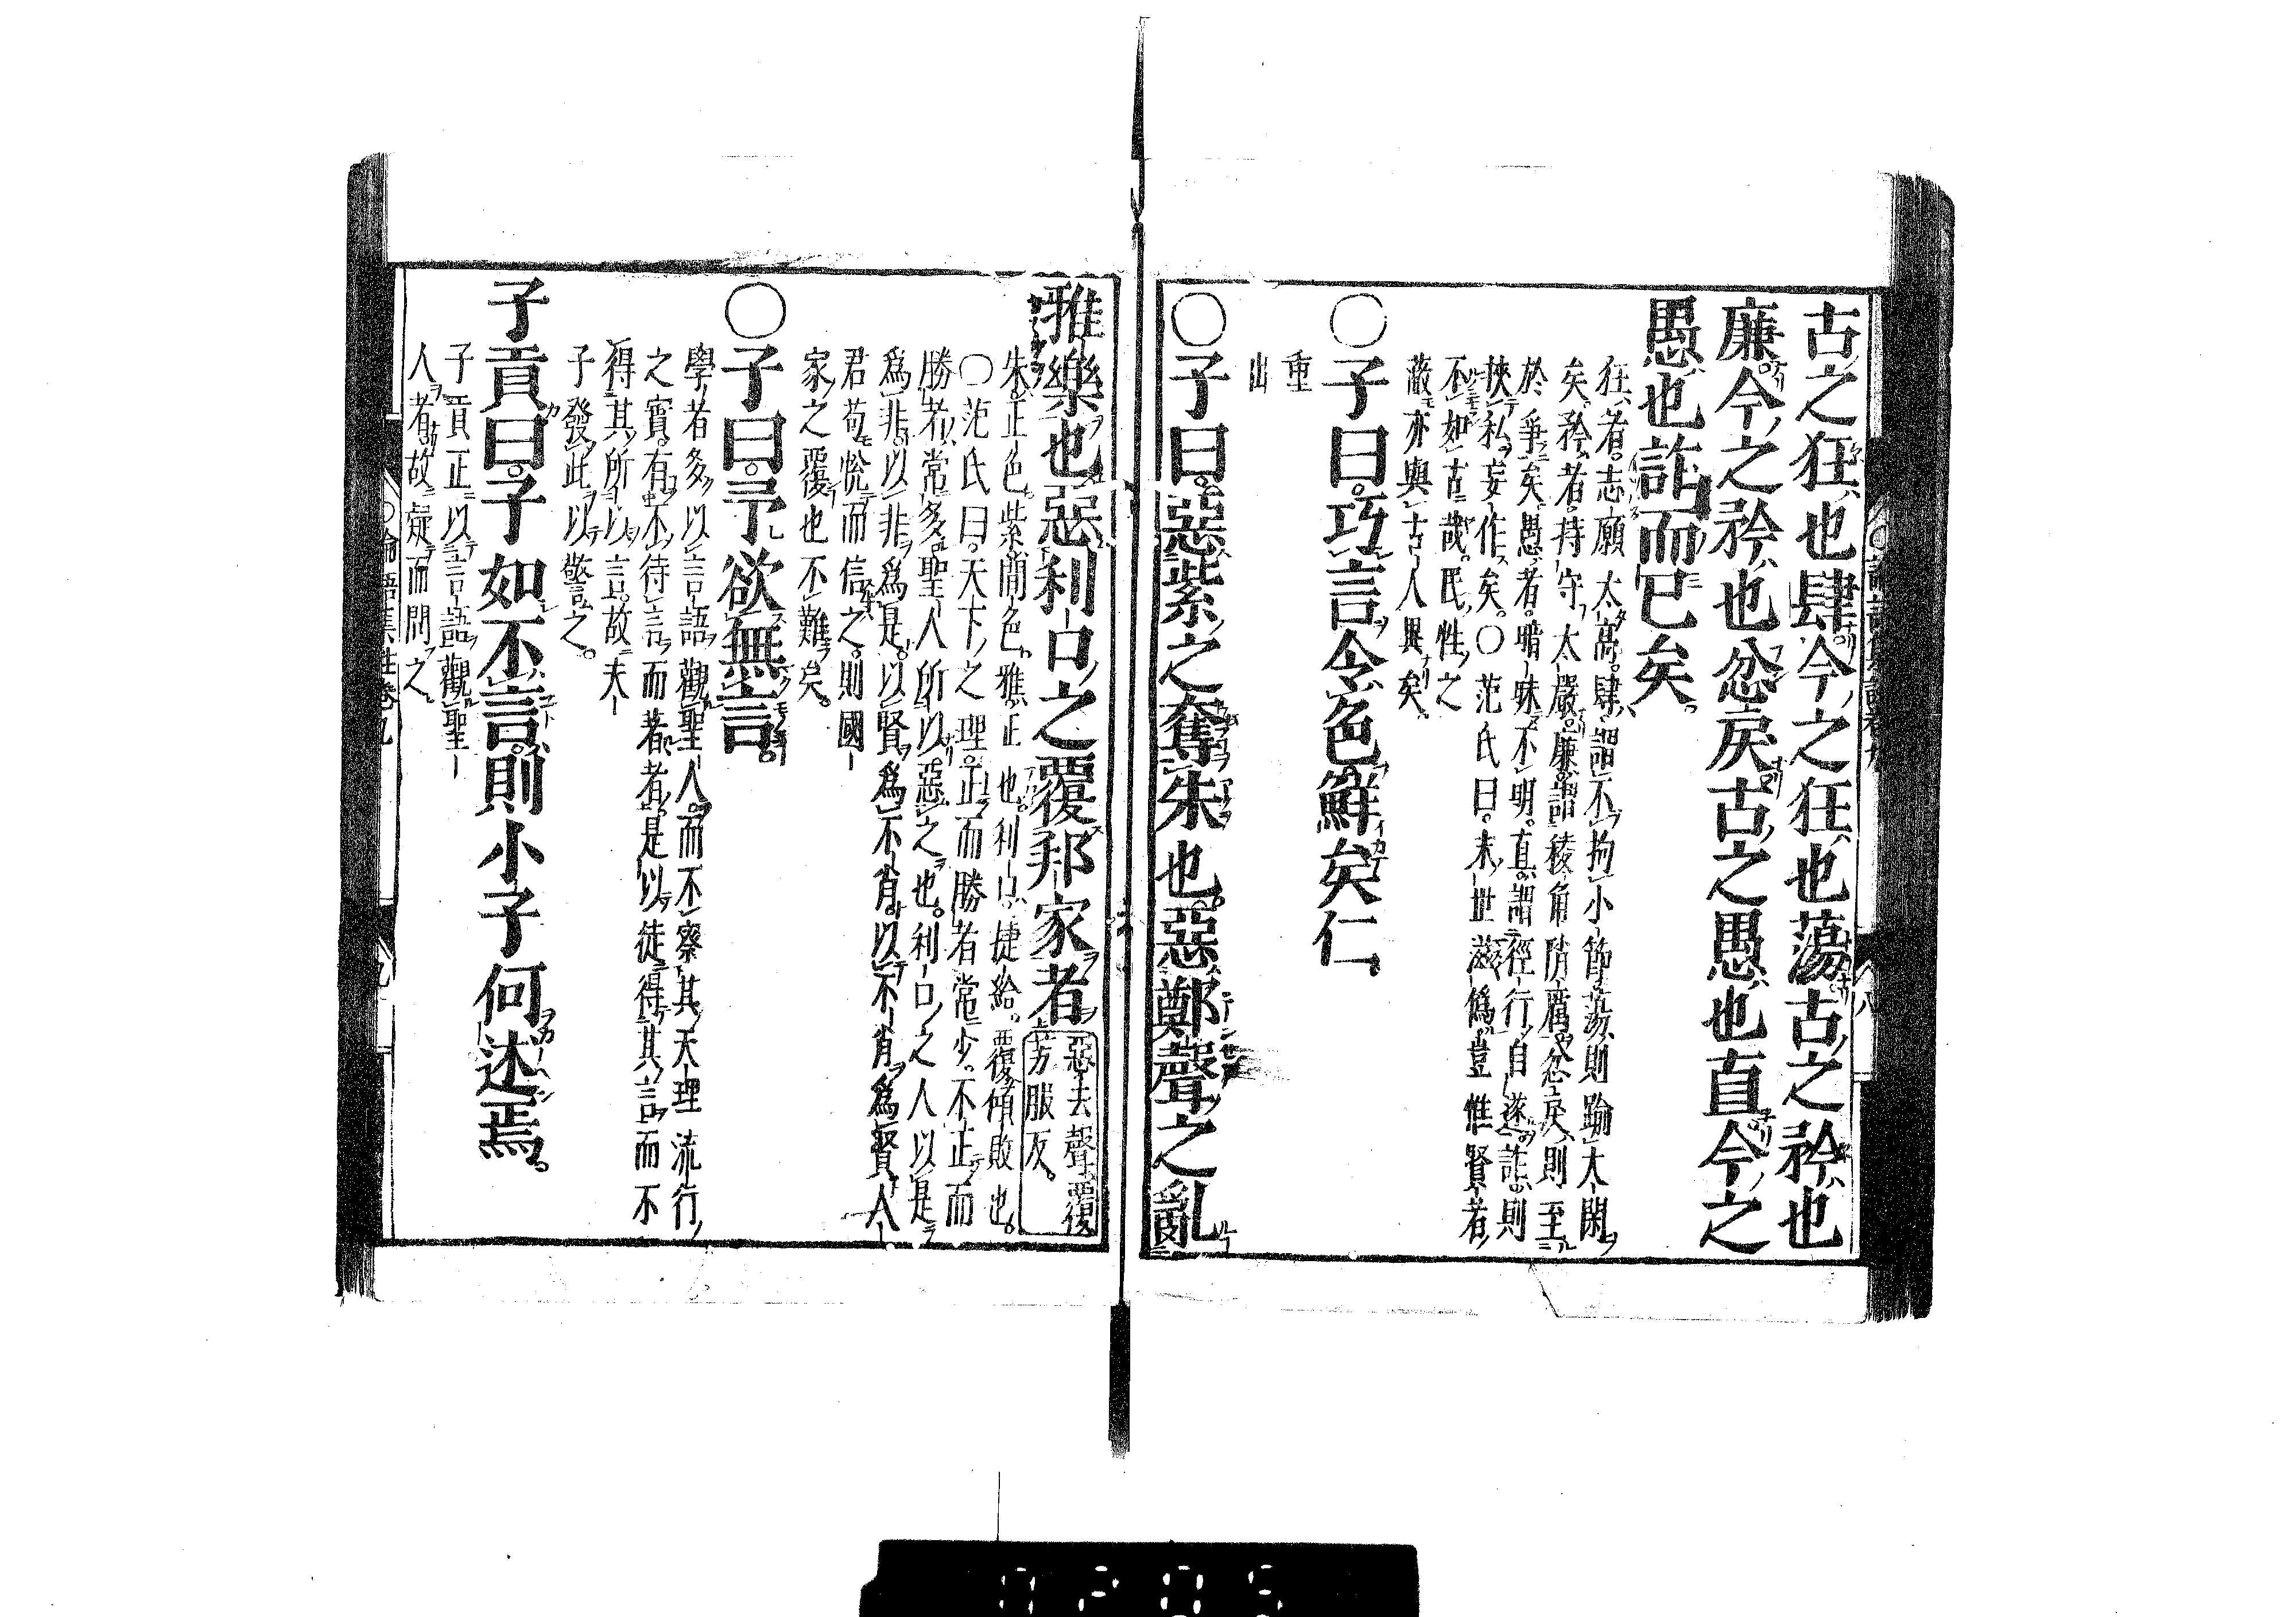 古之狂也肆。今之狂也蕩古之矜也
廉。今之矜也忿戾古之愚也直今之
愚也詐而已矣。
狂者。志願太高。肆謂不拘小節。蕩則踰大閑
矣。矜者。持守太嚴。廉謂稜角陗厲。忿戾則至
於爭矣。愚者。暗昧不明。直謂徑行自遂。詐則
挾私妄作矣。〇范氏曰。末世滋偽。豈惟賢者
不如古哉。民性之
蔽亦與古人異矣。
〇子曰。巧言令色鮮矣仁
重
出
〇子曰。惡紫之奪朱也。惡鄭聲之亂
雅樂也惡利口之覆邦家者
惡去聲。覆
芳服反。
朱。正色紫間色。雅正也。利口捷給。覆傾敗也。
〇范氏曰。天下之理。正而勝者常少。不正而
勝者常多。聖人所以惡之也。利口之人以是
爲非。以非爲是。以賢爲不肖。以不肖爲賢人
君苟悅而信之。則國
家之覆也不難矣。
〇子曰。予欲無言。
學者多以言語觀聖人。而不察其天理流行
之實。有不待言而著者。是以徒得其言而不
得其所以言。故夫
子發此以警之。
子貢曰。子如不言。則小子何述焉。
子貢正以言語觀聖
人者。故疑而問之。
〇論語集註卷九